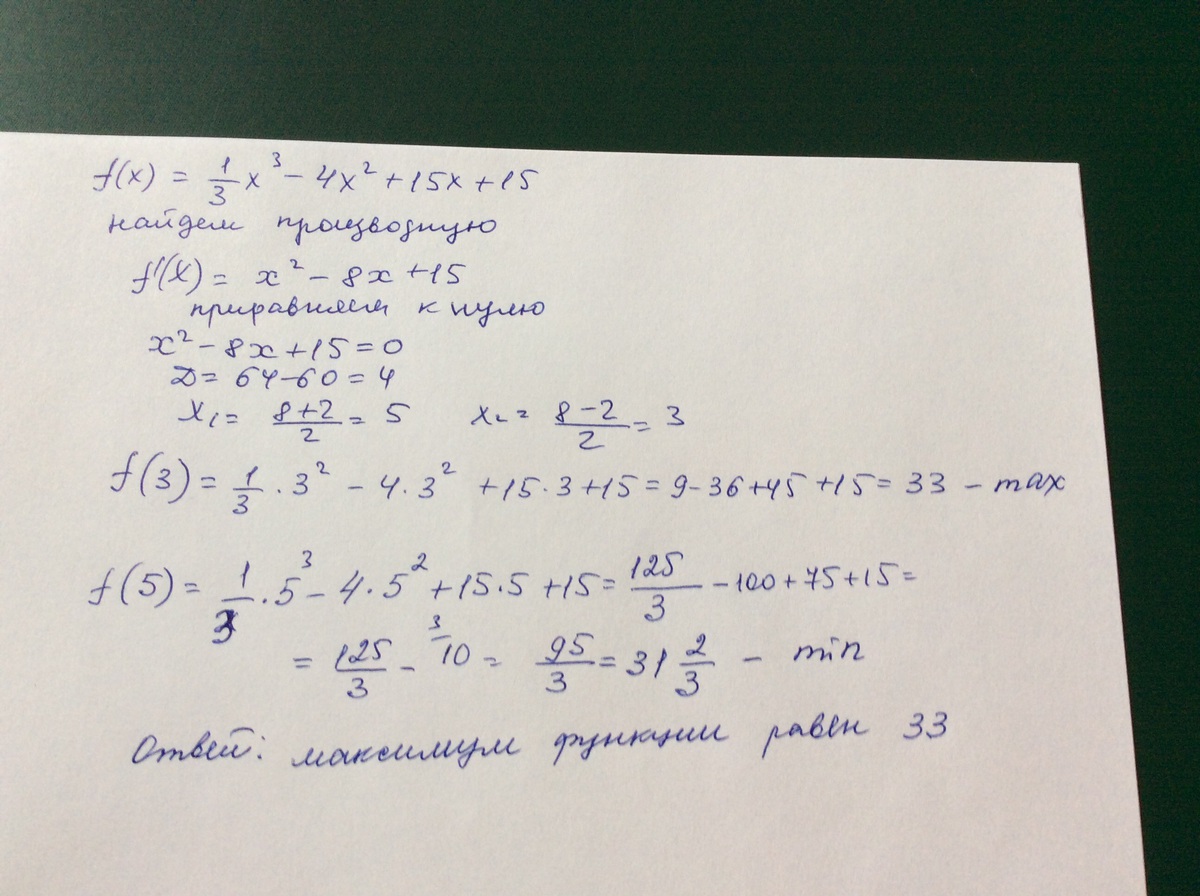 f(x) = 1/3 x³ - 4x² + 15x + 15
найдем производную
f'(x) = x² - 8x + 15
приравняем к нулю
x² - 8x + 15 = 0
D = 64 - 60 = 4
x₁ = (8+2)/2 = 5 x₂ = (8-2)/2 = 3
f(3) = 1/3 · 3² - 4·3² + 15·3 + 15 = 9 - 36 + 45 + 15 = 33 - max
f(5) = 1/3 · 5³ - 4·5² + 15·5 + 15 = 125/3 - 100 + 75 + 15 =
= 125/3 - ³/10 = 95/3 = 31 2/3 - min
Ответ: максимум функции равен 33